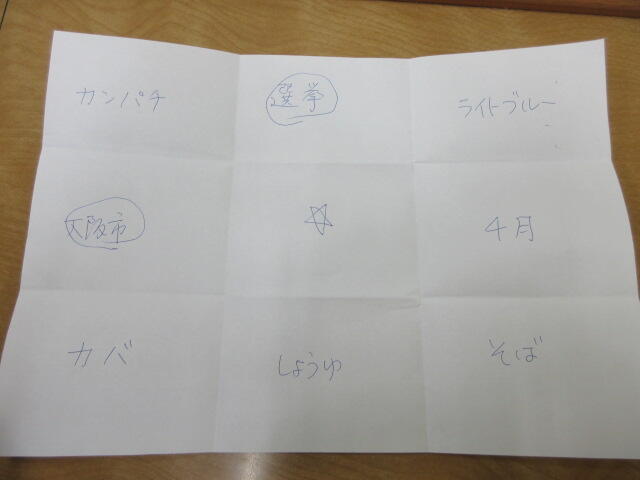 カンパチ
選挙
ライトブルー
大阪市
4月
カバ
しょうゆ
そば